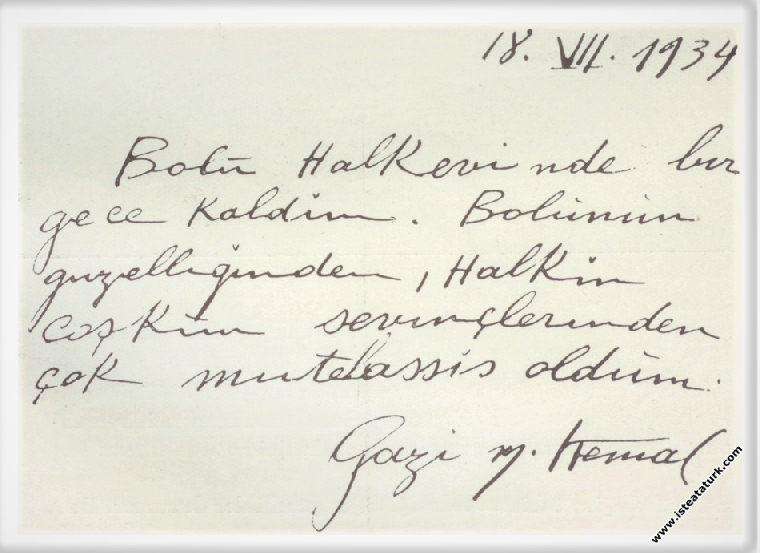 18. VII. 1934
Bolu Halkevinde bir
gece kaldım. Bolunun
guzelliğinden, Halkın
coşkun sevinçlerinden
çok mutehassis oldum.
Gazi M. Kemal
www.isteataturk.com